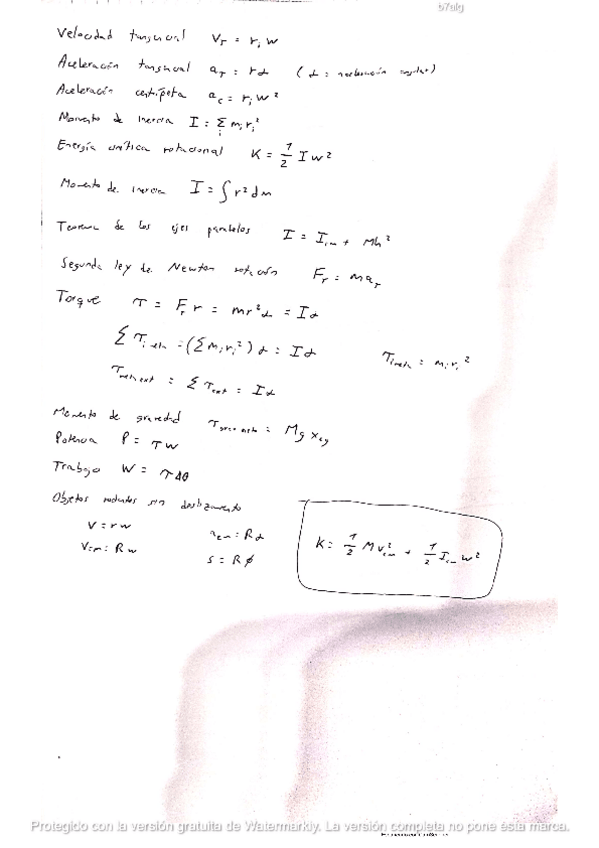 b7ulg
Velocidad tangencial V_T = r_i w
Aceleración tangencial a_T = r α (α = aceleración angular)
Aceleración centrípeta a_c = r_i w²
Momento de inercia I = Σ_i m_i r_i²
Energía cinética rotacional K = 1/2 I w²
Momento de inercia I = ∫ r² dm
Teorema de los ejes paralelos I = I_cm + Mh²
Segunda ley de Newton rotación F_T = m a_T
Torque τ = F_T r = mr²α = Iα
Σ τ_i neta = (Σ m_i r_i²) α = Iα τ_i neta = m_i r_i²
τ_net ext = Σ τ_ext = Iα
Momento de gravedad = Mg x_cg
Potencia P = τ w
Trabajo W = τ Δθ
Objetos rodantes sin deslizamiento
V = r w a_cm = R α
V_cm = R w s = R ϕ
K = 1/2 M v_cm² + 1/2 I_cm w²
Protegido con la versión gratuita de Watermarkly. La versión completa no pone esta marca.